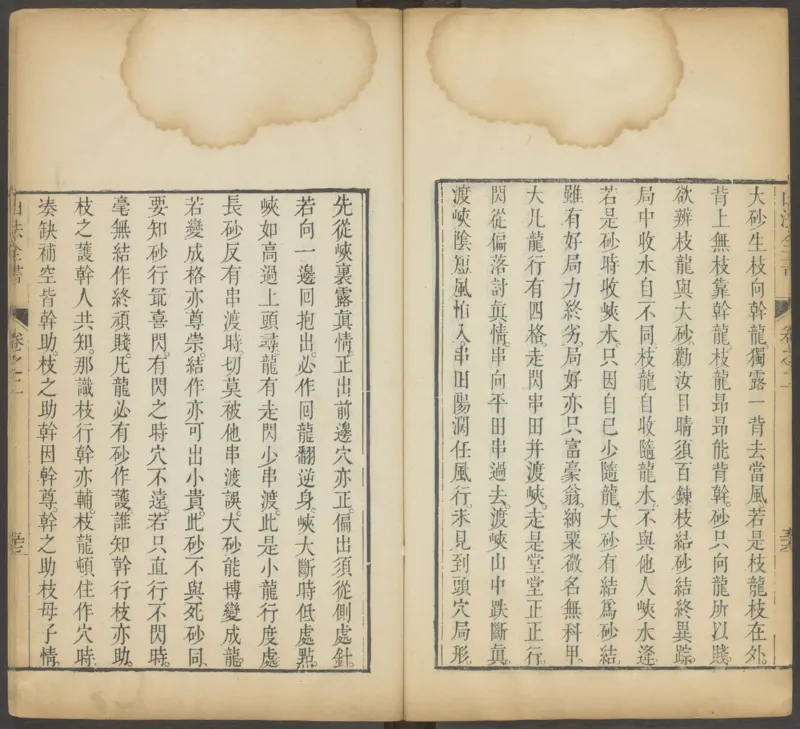 大砂生枝向幹龍獨露一背去當風若是枝龍枝在外
背上無枝靠幹龍枝龍昂昂能背幹砂只向龍所以賤
欲辨枝龍與大砂勸汝目睛須百鍊枝結砂結終異踪
局中收水自不同枝龍自收隨龍水不與他人峽水逢
若是砂時收峽水只因自己少隨龍大砂有結爲砂結
雖有好局力終劣局好亦只富豪翁納粟微名無科甲
大凡龍行有四格走閃串田并渡峽走是堂堂正正行
閃從偏落討眞情串向平田串過去渡峽山中跌斷眞
渡峽陰短風怕入串田陽濶任風行未見到頭穴局形
先從峽裏露眞情正出前邊穴亦正偏出須從側處針
若向一邊回抱出必作回龍翻逆身峽大斷時低處點
峽如高過上頭尋龍有走閃少串渡此是小龍行度處
長砂反有串渡時切莫被他串渡誤大砂能博變成龍
若變成格亦尊崇結作亦可出小貴此砂不與死砂同
要知砂行寔喜閃有閃之時穴不遠若只直行不閃時
毫無結作終頑賤凡龍必有砂作護誰知幹行枝亦助
枝之護幹人共知那識枝行幹亦輔枝龍頓住作穴時
湊缺補空皆幹助枝之助幹因幹尊幹之助枝母子情
山法全書
卷之二